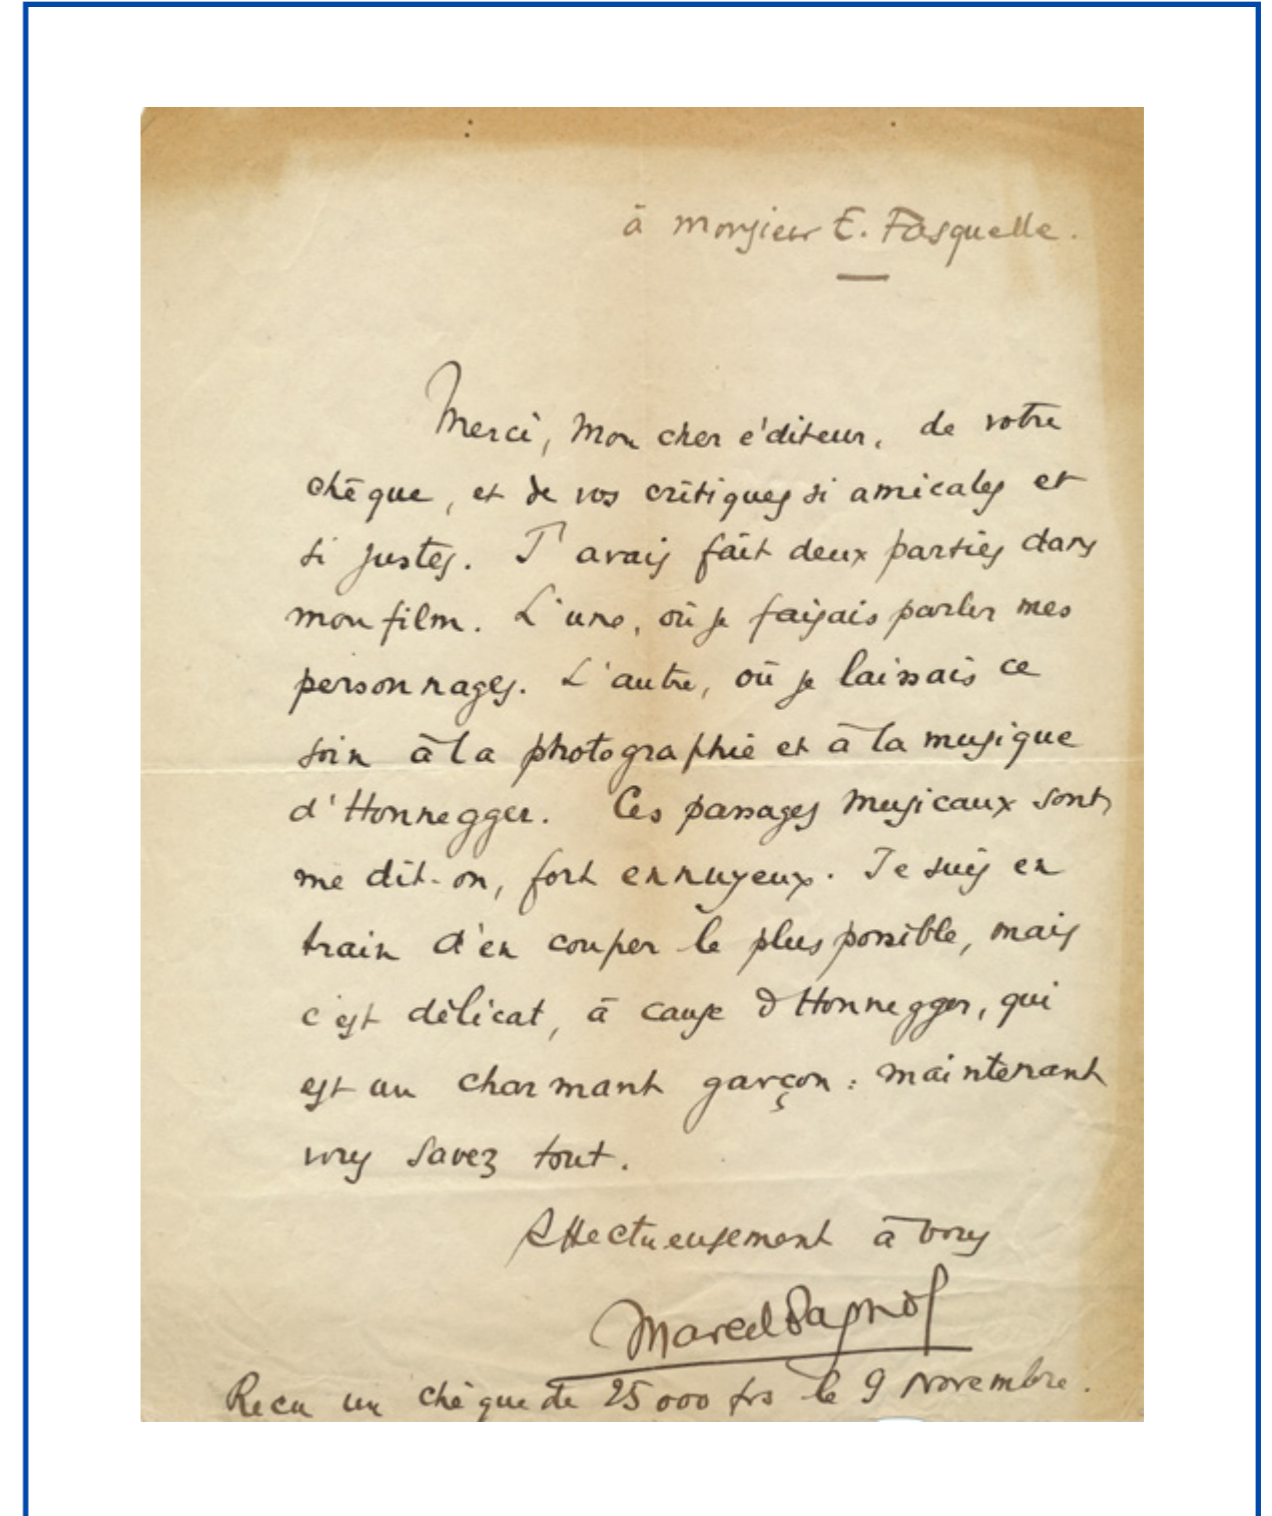 à monsieur E. Fasquelle.
Merci, mon cher éditeur, de votre
chèque, et de vos critiques si amicales et
si justes. J'avais fait deux parties dans
mon film. L'une, où je faisais parler mes
personnages. L'autre, où je laissais ce
soin à la photographie et à la musique
d'Honnegger. Ces passages musicaux sont,
me dit-on, fort ennuyeux. Je suis en
train d'en couper le plus possible, mais
c'est délicat, à cause d'Honnegger, qui
est un charmant garçon : maintenant
vous savez tout.
Affectueusement à vous
Marcel Pagnol
Recu un chèque de 25000 frs le 9 Novembre.